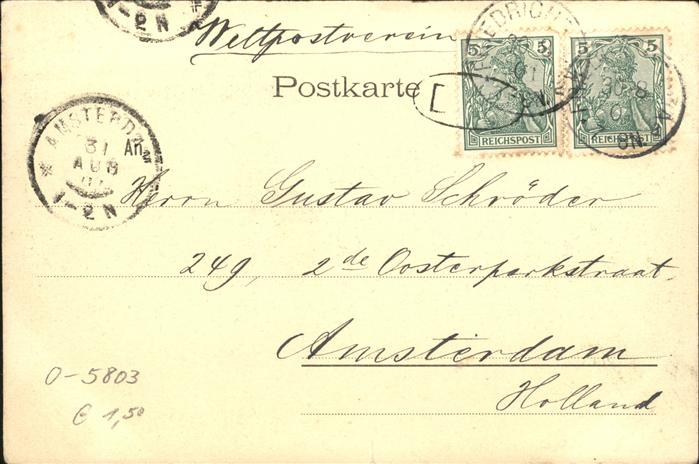 2 N
Weltpostverein
Postkarte
5 5 5 5
REICHSPOST REICHSPOST
30 8
8N
AMSTERDAM
31
AUG
1-2 N
Herrn Gustav Schröder
249, 2de Oosterparkstraat
Amsterdam
Holland
0-5803
€ 1,50